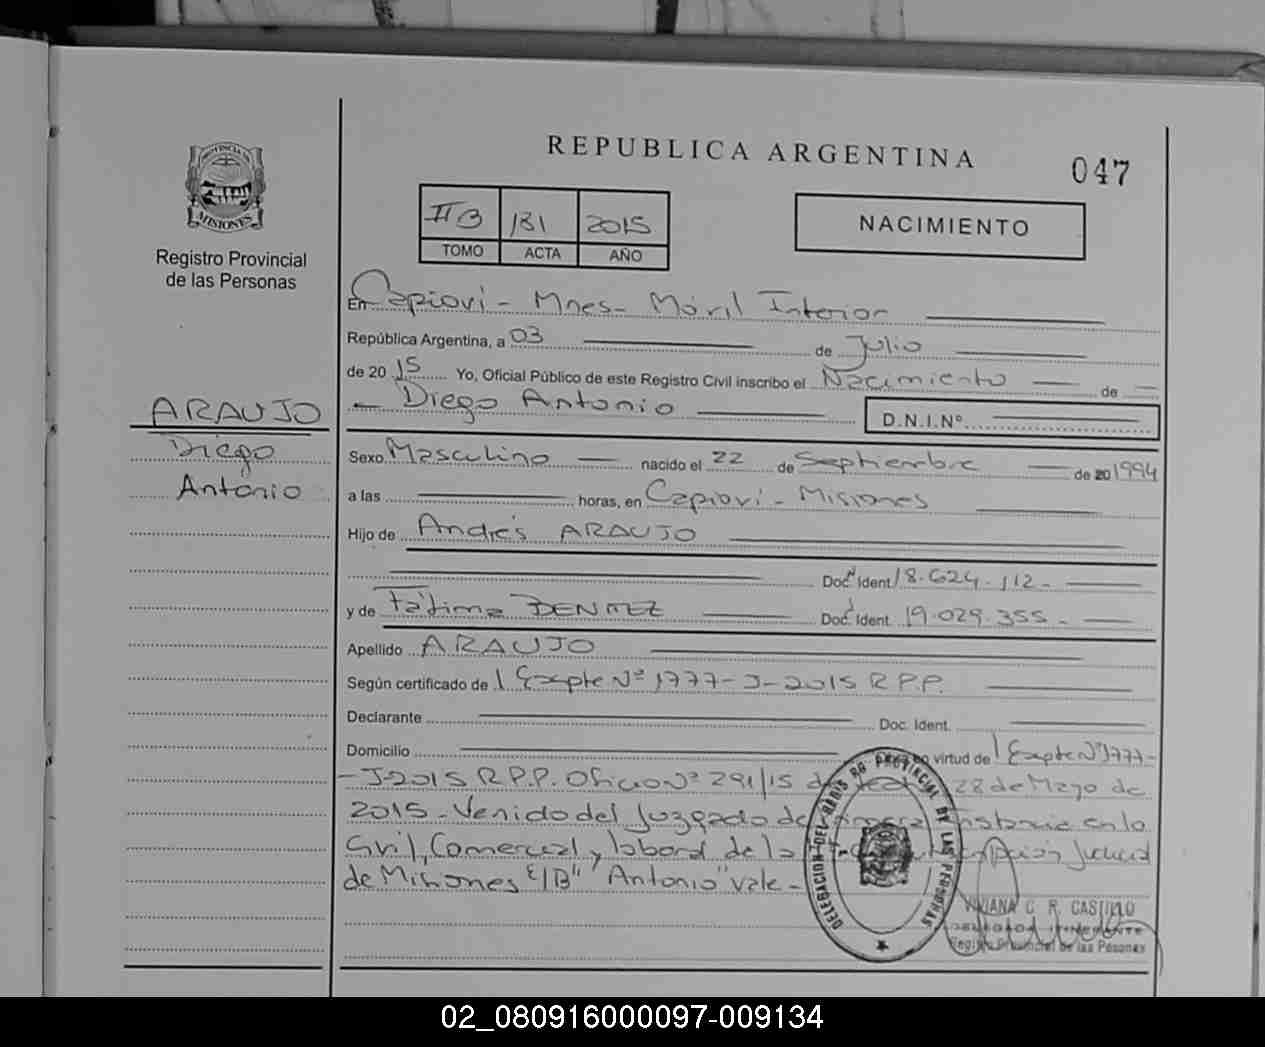 REPUBLICA ARGENTINA
047
PROVINCIA DE
MISIONES
Registro Provincial
de las Personas
II B 131 2015
TOMO ACTA AÑO
NACIMIENTO
En Capiovi - Mnes - Móvil Interior
República Argentina, a 03 de Julio
de 20 15 Yo, Oficial Público de este Registro Civil inscribo el Nacimiento de
Diego Antonio D.N.I.Nº
ARAUJO
Diego
Antonio
Sexo Masculino nacido el 22 de Septiembre de 20 1994
a las horas, en Capiovi - Misiones
Hijo de Andrés ARAUJO
Doc. Ident. 18.624.112-
y de Fátima BENITEZ Doc. Ident. 19.029.355-
Apellido ARAUJO
Según certificado de Expte Nº 1777-J-2015 R.P.P.
Declarante Doc. Ident.
Domicilio en virtud de Expte Nº 1777-
-J-2015 R.P.P. Oficio Nº 291/15 de 28 de Mayo de
2015 - Venido del Juzgado de Primera Instancia en lo
Civil, Comercial y laboral de la Judicial
de Misiones E/B" "Antonio" vale -
DELEGACION DEL REGISTRO PROVINCIAL DE LAS PERSONAS
VIVIANA C. R. CASTILLO
DELEGADA ITINERANTE
Registro Provincial de las Personas
02_080916000097-009134